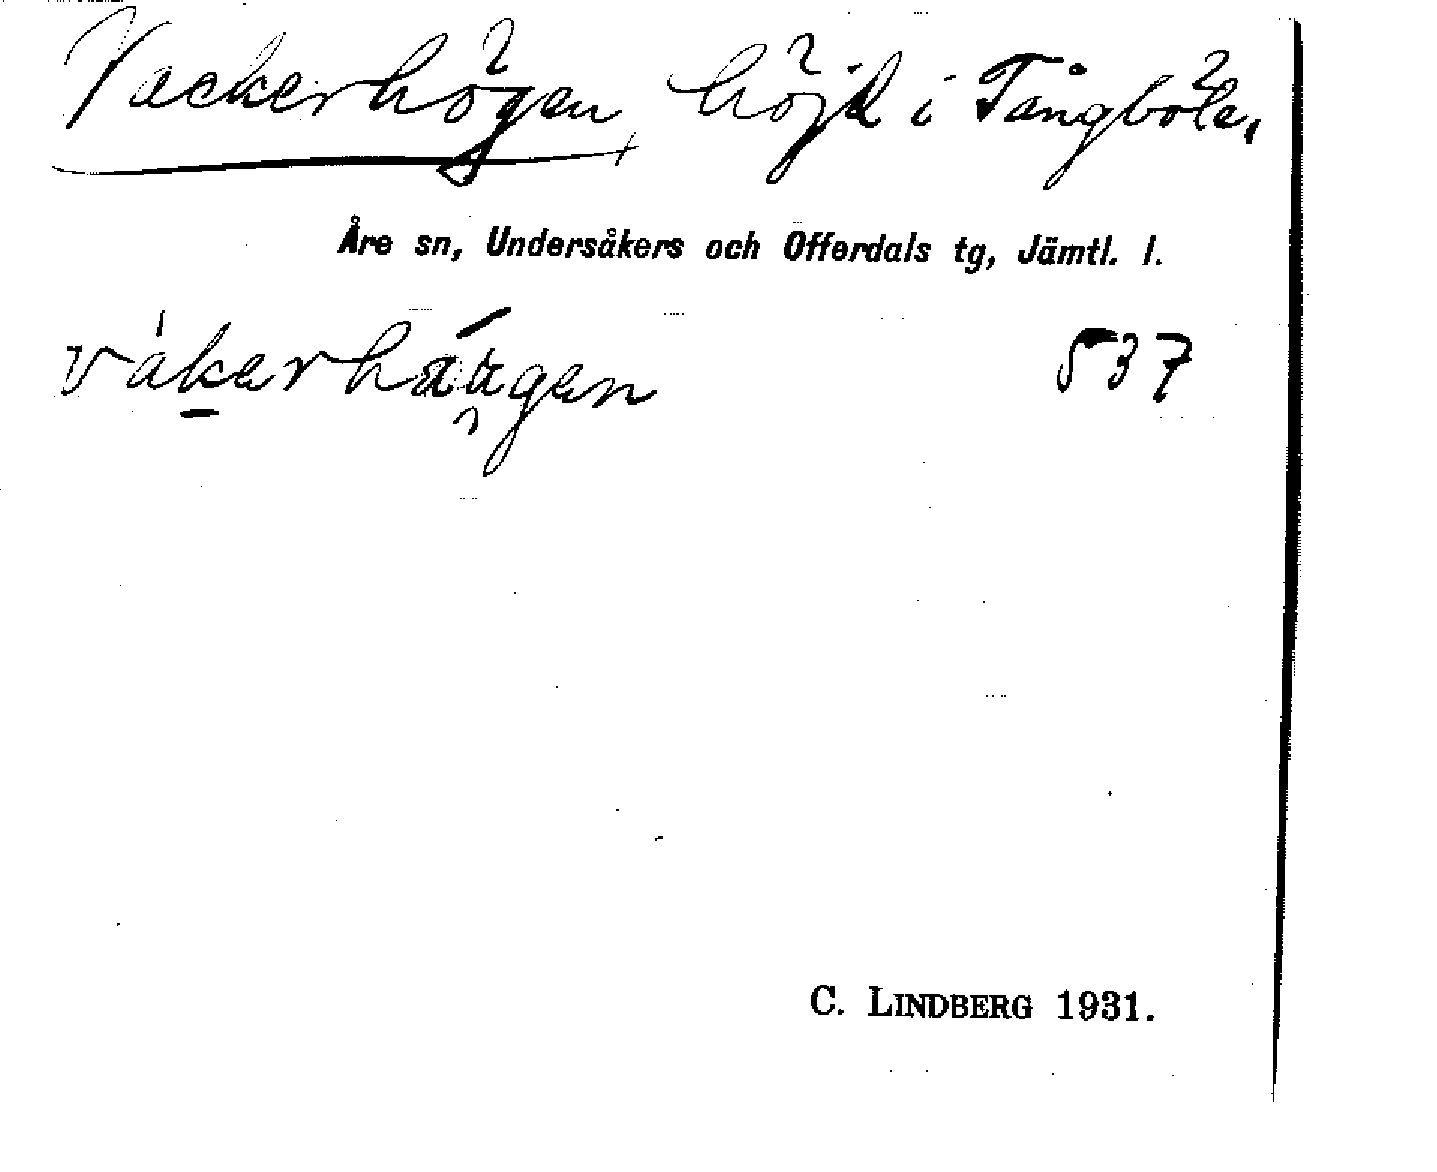 Vackerhögen höjd i Tångböle,
Åre sn, Undersåkers och Offerdals tg, Jämtl. l.
vákerháugen 537
C. LINDBERG 1931.